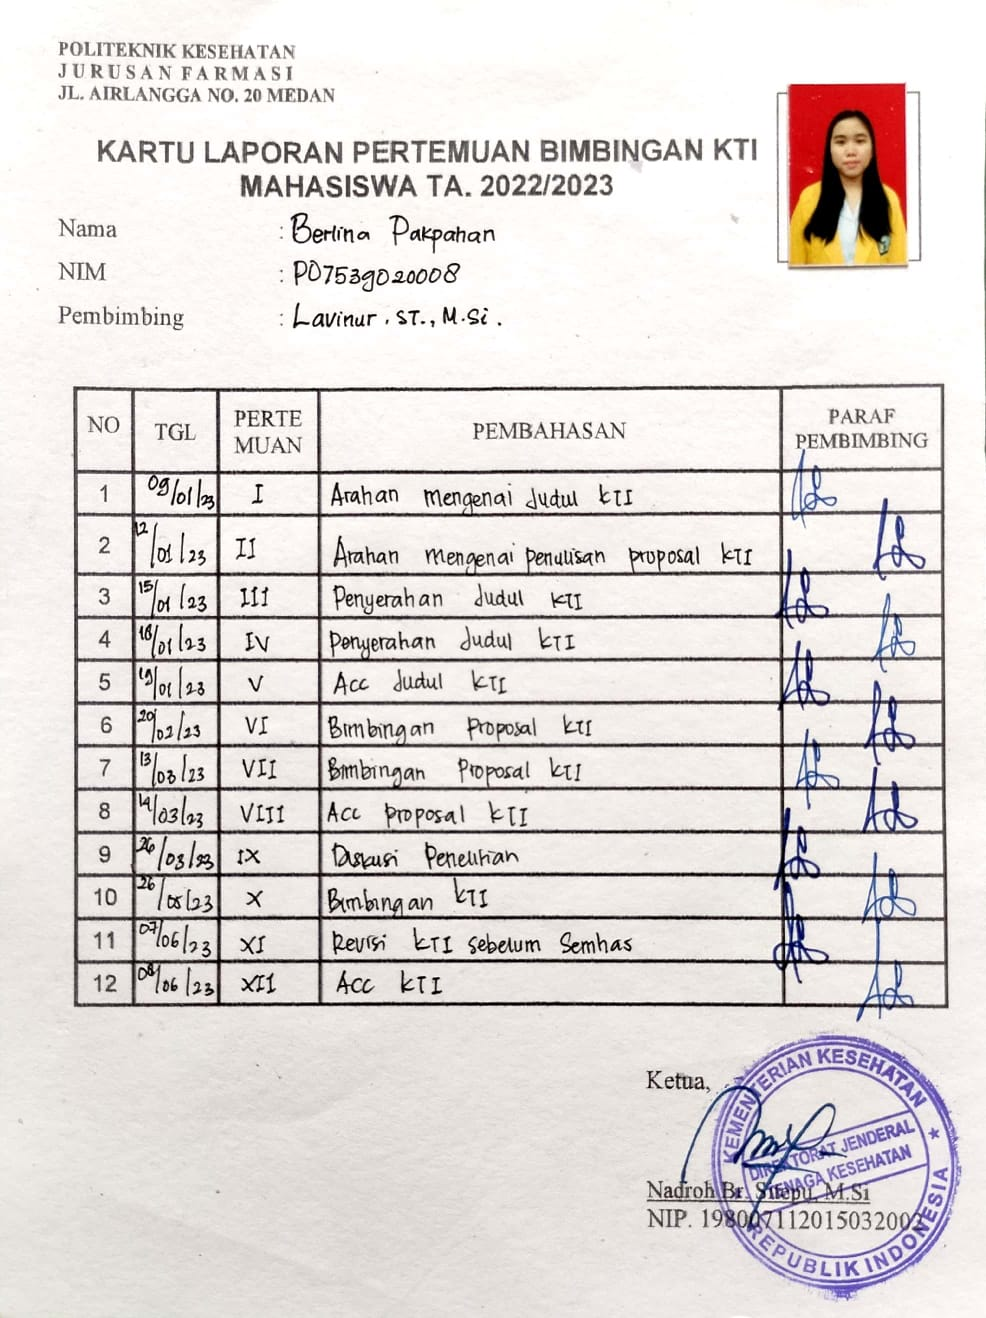 POLITEKNIK KESEHATAN
JURUSAN FARMASI
JL. AIRLANGGA NO. 20 MEDAN
KARTU LAPORAN PERTEMUAN BIMBINGAN KTI
MAHASISWA TA. 2022/2023
Nama : Berlina Pakpahan
NIM : P07539020008
Pembimbing : Lavinur, ST., M.Si.
NO TGL PERTE MUAN PEMBAHASAN PARAF PEMBIMBING
1 09/01/23 I Arahan mengenai Judul KTI
2 12/01/23 II Arahan mengenai penulisan proposal KTI
3 15/01/23 III Penyerahan Judul KTI
4 18/01/23 IV Penyerahan Judul KTI
5 19/01/23 V Acc Judul KTI
6 20/02/23 VI Bimbingan Proposal KTI
7 13/03/23 VII Bimbingan Proposal KTI
8 14/03/23 VIII Acc proposal KTI
9 26/03/23 IX Diskusi Penelitian
10 26/05/23 X Bimbingan KTI
11 07/06/23 XI Revisi KTI sebelum Semhas
12 08/06/23 XII Acc KTI
Ketua,
KEMENTERIAN KESEHATAN
DIREKTORAT JENDERAL
TENAGA KESEHATAN
REPUBLIK INDONESIA
Nadroh Br. Sitepu, M.Si
NIP. 198007112015032002